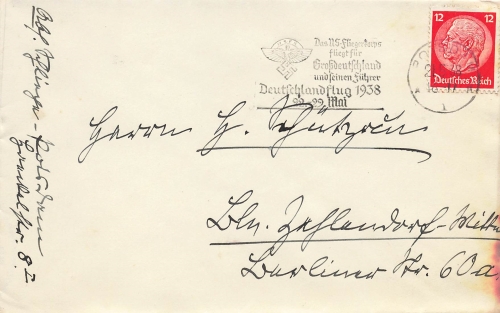 Das NS-Fliegerkorps
fliegt für
Großdeutschland
und seinen Führer
Deutschlandflug 1938
22.-29. Mai
12 12
Deutsches Reich
Herrn H. Schützrun
Bln. Zehlendorf-Mitte
Berliner Str. 60a
Potsdam
str. 8 I